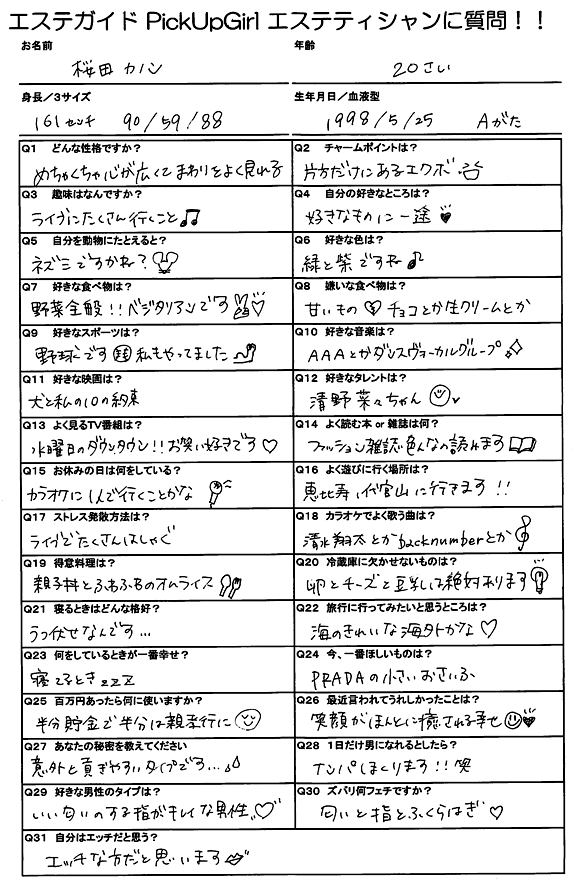 エステガイド PickUpGirl エステティシャンに質問！！
お名前
桜田 カノン
年齢
20さい
身長／3サイズ
161センチ 90/59/88
生年月日／血液型
1998/5/25 Aがた
Q1 どんな性格ですか？
めちゃくちゃ心が広くてまわりをよく見れる子
Q2 チャームポイントは？
片方だけにあるエクボ
Q3 趣味はなんですか？
ライブにたくさん行くこと
Q4 自分の好きなところは？
好きなものに一途
Q5 自分を動物にたとえると？
ネズミですかね？
Q6 好きな色は？
緑と紫ですね
Q7 好きな食べ物は？
野菜全般!!ベジタリアンです
Q8 嫌いな食べ物は？
甘いもの チョコとか生クリームとか
Q9 好きなスポーツは？
野球です 私もやってました
Q10 好きな音楽は？
AAAとかダンスヴォーカルグループ
Q11 好きな映画は？
犬と私の10の約束
Q12 好きなタレントは？
清野菜々ちゃん
Q13 よく見るTV番組は？
水曜日のダウンタウン!!お笑い好きです♡
Q14 よく読む本 or 雑誌は何？
ファッション雑誌色んなの読みます
Q15 お休みの日は何をしている？
カラオケに1人で行くことかな
Q16 よく遊びに行く場所は？
恵比寿、代官山に行きます!!
Q17 ストレス発散方法は？
ライブでたくさんはしゃぐ
Q18 カラオケでよく歌う曲は？
清水翔太とかbacknumberとか
Q19 得意料理は？
親子丼とふわふわのオムライス
Q20 冷蔵庫に欠かせないものは？
卵とチーズと豆乳は絶対あります
Q21 寝るときはどんな格好？
うつ伏せなんです…
Q22 旅行に行ってみたいと思うところは？
海のきれいな海外かな♡
Q23 何をしているときが一番幸せ？
寝てるときzzz
Q24 今、一番ほしいものは？
PRADAの小さいおさいふ
Q25 百万円あったら何に使いますか？
半分貯金で半分は親孝行に
Q26 最近言われてうれしかったことは？
笑顔がほんとに癒される幸せ
Q27 あなたの秘密を教えてください
意外と貢ぎやすいタイプです…
Q28 1日だけ男になれるとしたら？
ナンパしまくります!!笑
Q29 好きな男性のタイプは？
いい匂いのする指がキレイな男性♡
Q30 ズバリ何フェチですか？
匂いと指とふくらはぎ♥
Q31 自分はエッチだと思う？
エッチな方だと思います